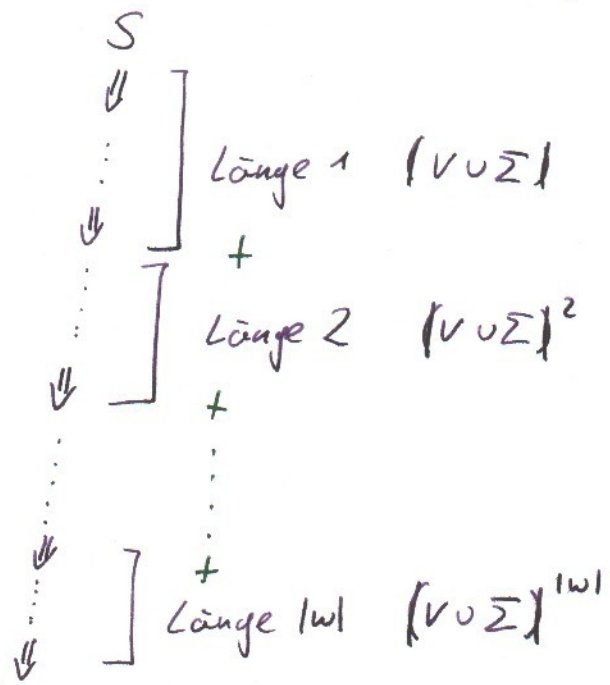 S
⇓
⇓
Länge 1 |V ∪ Σ|
+
⇓
Länge 2 |V ∪ Σ|²
+
⇓
+
Länge |w| |V ∪ Σ|^|w|
⇓